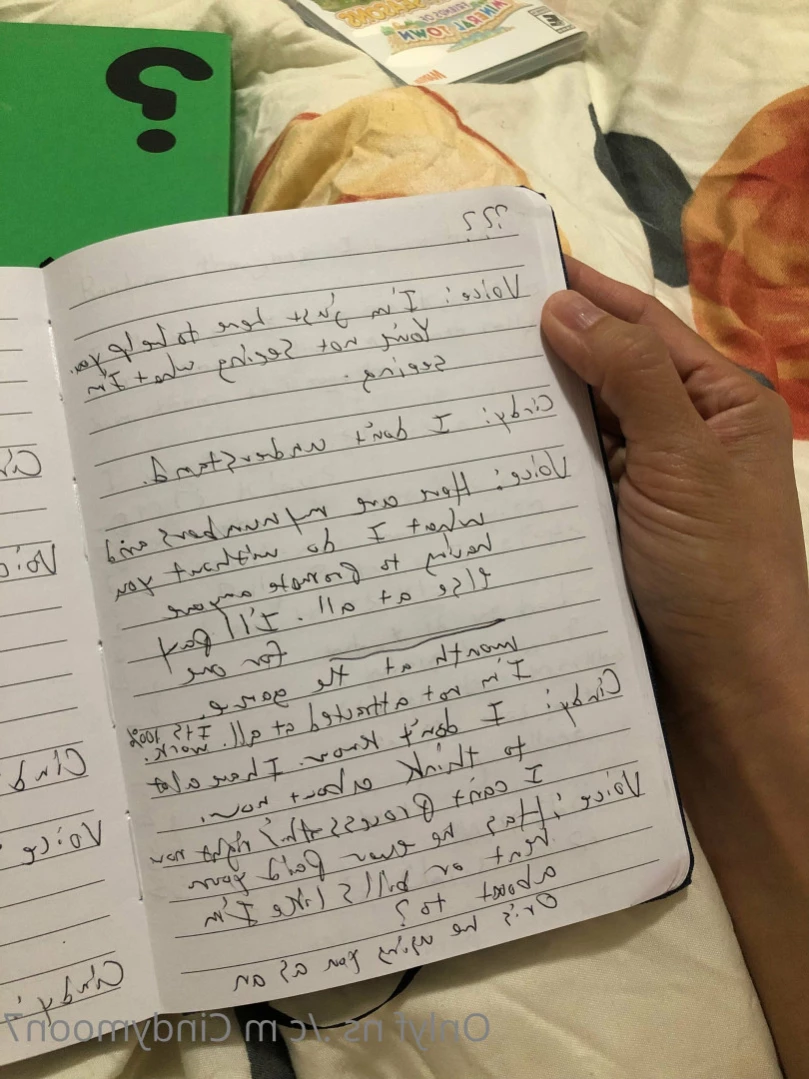 WINERAL TOWN
FRIENDS OF
?
???
Voice: I'm just here to help you.
You're not seeing what I'm
seeing.
Cindy: I don't understand.
Voice: Here are my numbers and
what I do without you
having to promote anyone
else at all. I'll pay
for one
month at the game.
I'm not attracted at all. It's 100% work.
Cindy: I don't know. I have a lot
to think about now.
I can't process this right now
Voice: Has he ever paid your
rent or bills like I'm
about to?
Or is he using you as an
Cin
Voic
Cind:
Voice:
Cindy:
Onlyf ns./c m Cindymoon7